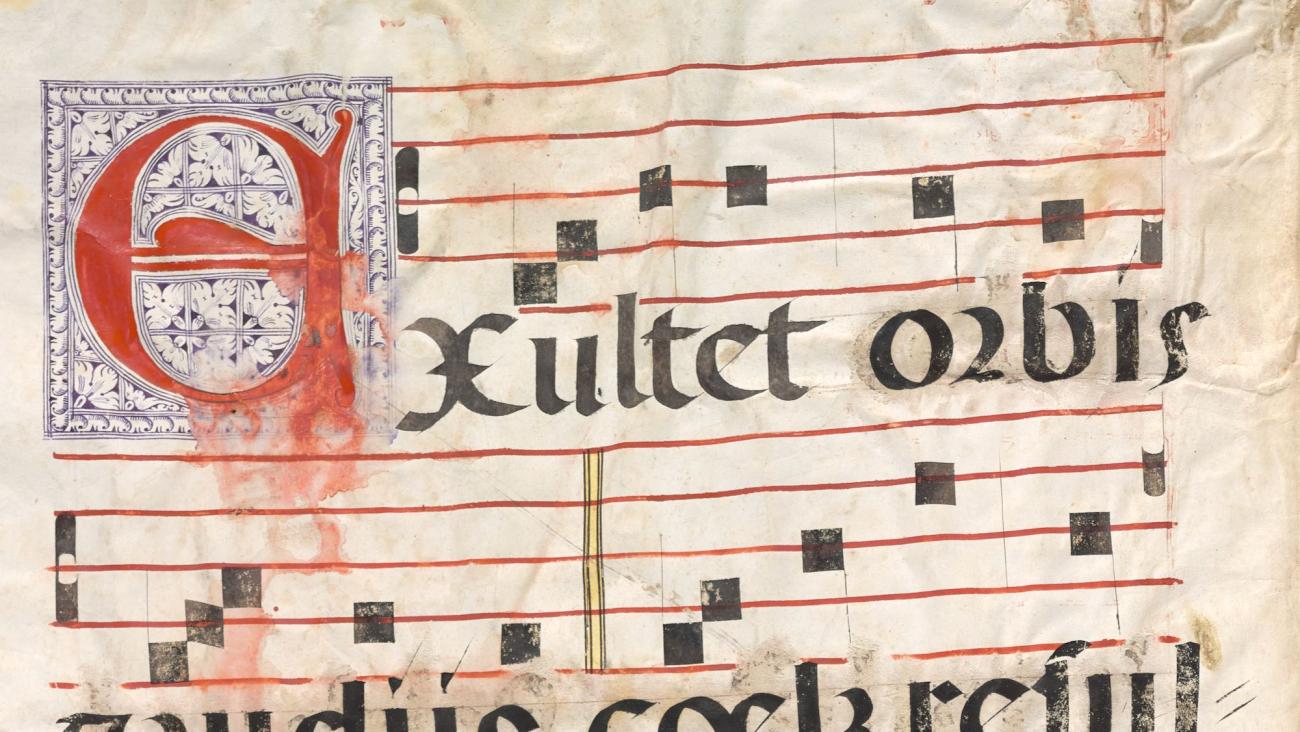 EXultet orbis
gaudijs cœlū resul